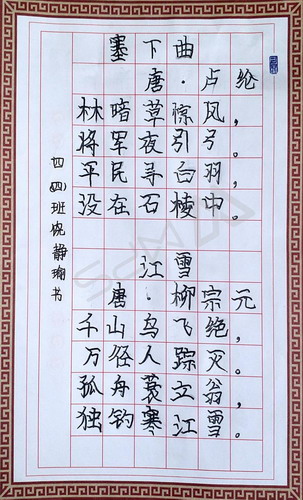 塞下曲
唐·卢纶
林暗草惊风，
将军夜引弓。
平民寻白羽，
没在石棱中。
江雪
唐·柳宗元
千山鸟飞绝，
万径人踪灭。
孤舟蓑立翁，
独钓寒江雪。
四（四）班静书